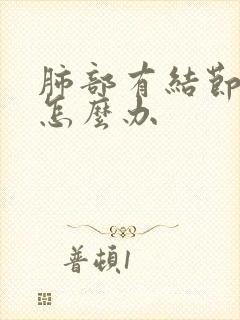 肺部有結節
怎麼办
普頓1